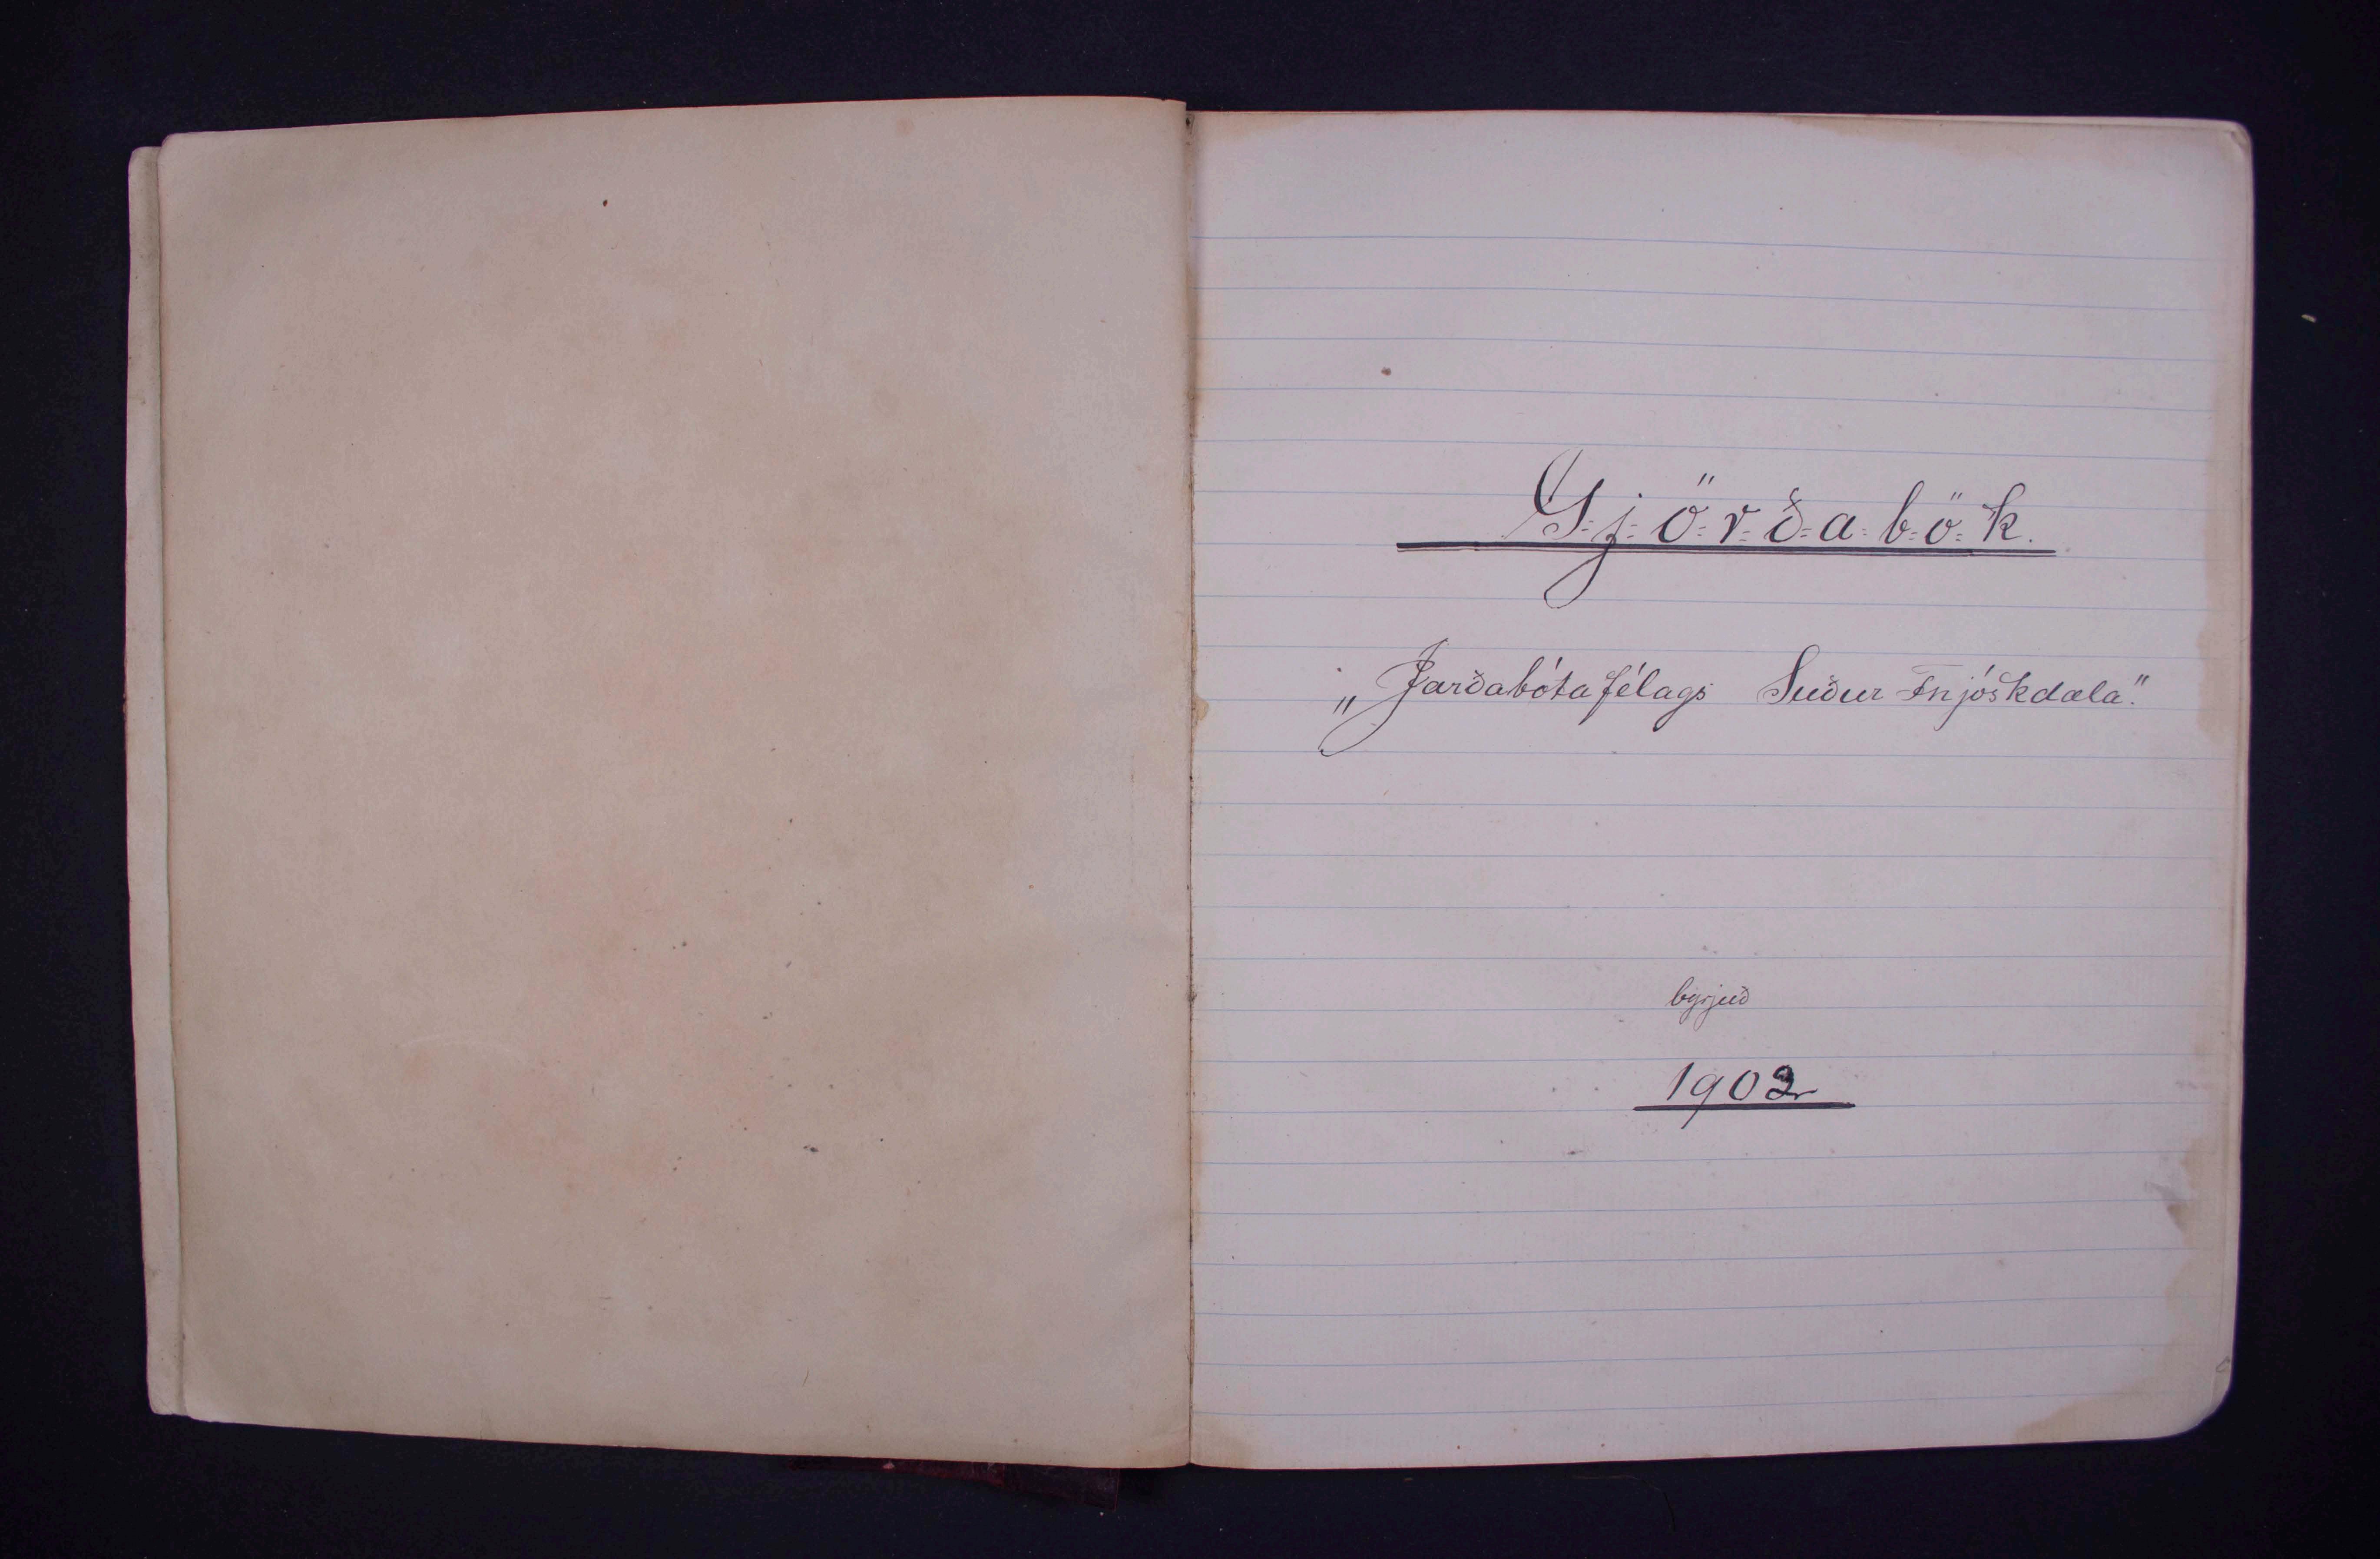 G=j=ö=r=ð=a=b=ö=k.
„Jarðabótafélags Suður Fnjóskdæla."
byrjuð
1902